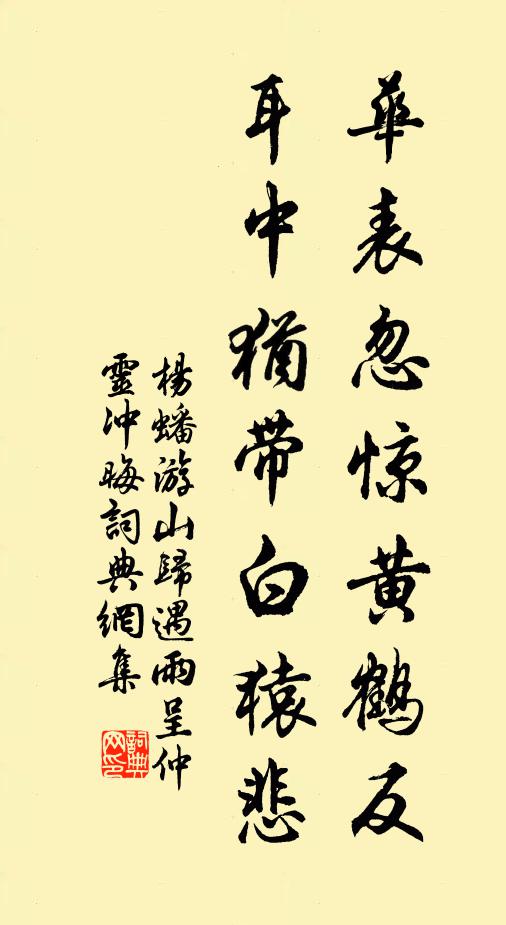 華表忽惊黄鹤反
耳中猶带白猿悲
楊蟠游山歸遇雨呈仲
靈沖晦詞典網集
詞典网印